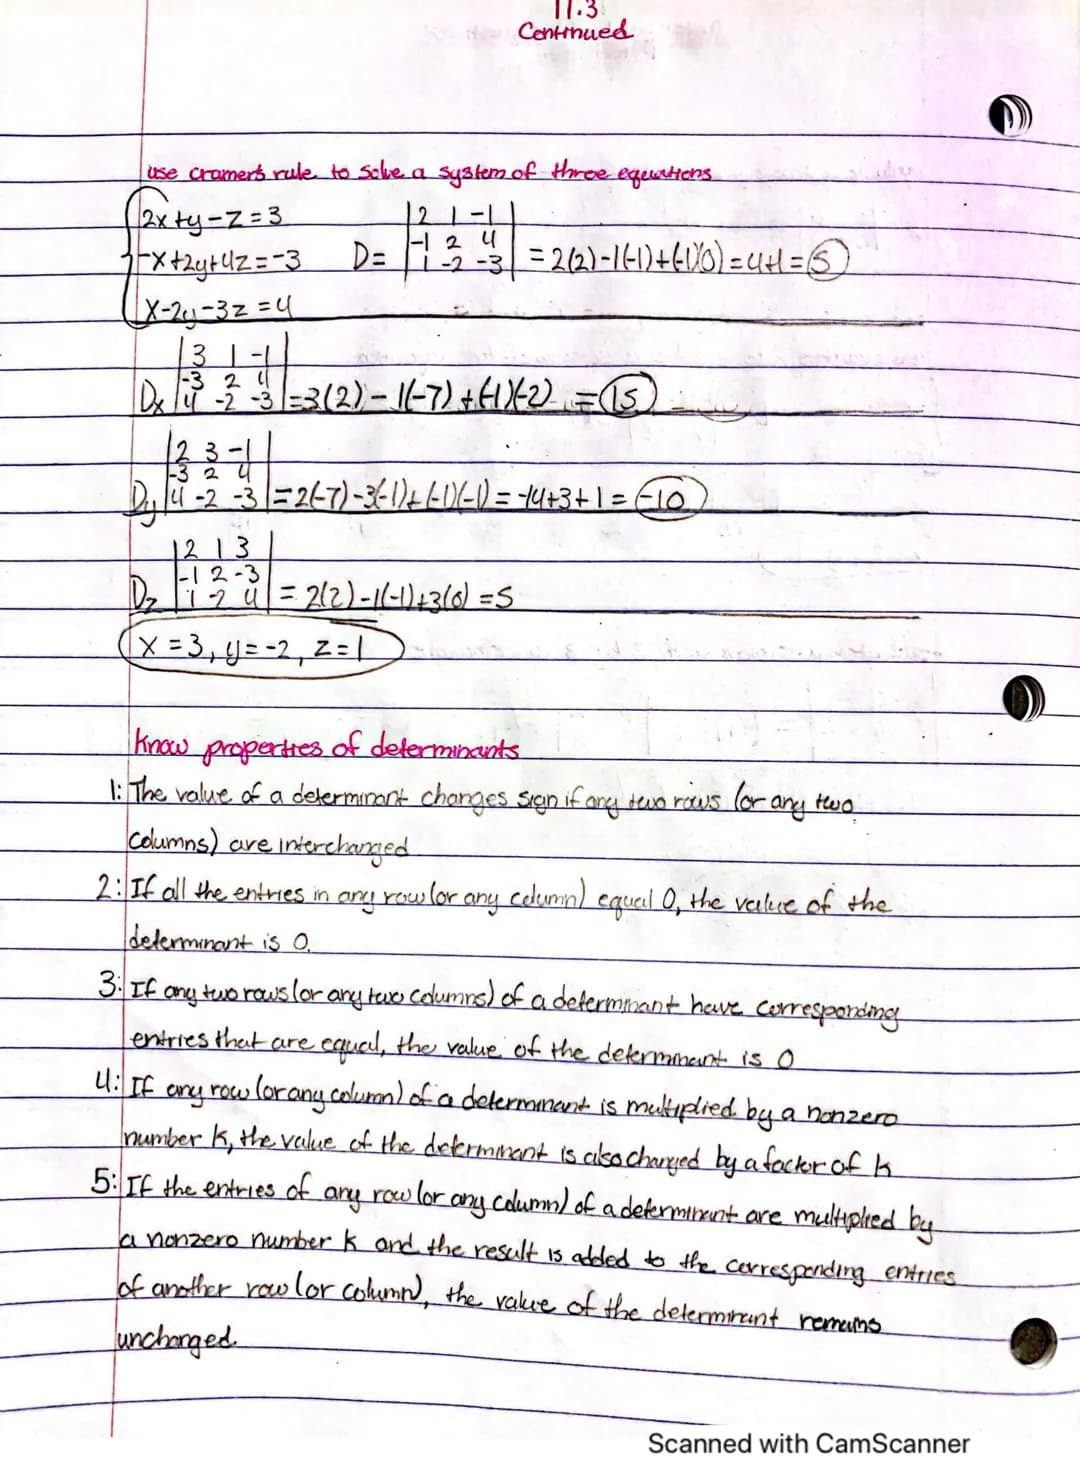 11.3
Continued
use cramer's rule to solve a system of three equations
2x+y-z=3
-x+2y+4z=-3
x-2y-3z=4
D= |2 1 -1|
|-1 2 4|
|1 -2 -3| = 2(2)-1(-1)+(-1)(0)=4+1=5
|3 1 -1|
|-3 2 4|
Dx |4 -2 -3| =3(2)-1(-7)+(-1)(-2) = 15
|2 3 -1|
|-3 2 4|
Dy |4 -2 -3| =2(-7)-3(-1)+(-1)(-1)=-14+3+1=-10
|2 1 3|
|-1 2 -3|
Dz |1 -2 4| = 2(2)-1(-1)+3(0)=5
x=3, y=-2, z=1
Know properties of determinants
1: The value of a determinant changes sign if any two rows (or any two
columns) are interchanged
2: If all the entries in any row (or any column) equal 0, the value of the
determinant is 0.
3: If any two rows (or any two columns) of a determinant have corresponding
entries that are equal, the value of the determinant is 0
4: If any row (or any column) of a determinant is multiplied by a nonzero
number k, the value of the determinant is also changed by a factor of k
5: If the entries of any row (or any column) of a determinant are multiplied by
a nonzero number k and the result is added to the corresponding entries
of another row (or column), the value of the determinant remains
unchanged.
Scanned with CamScanner